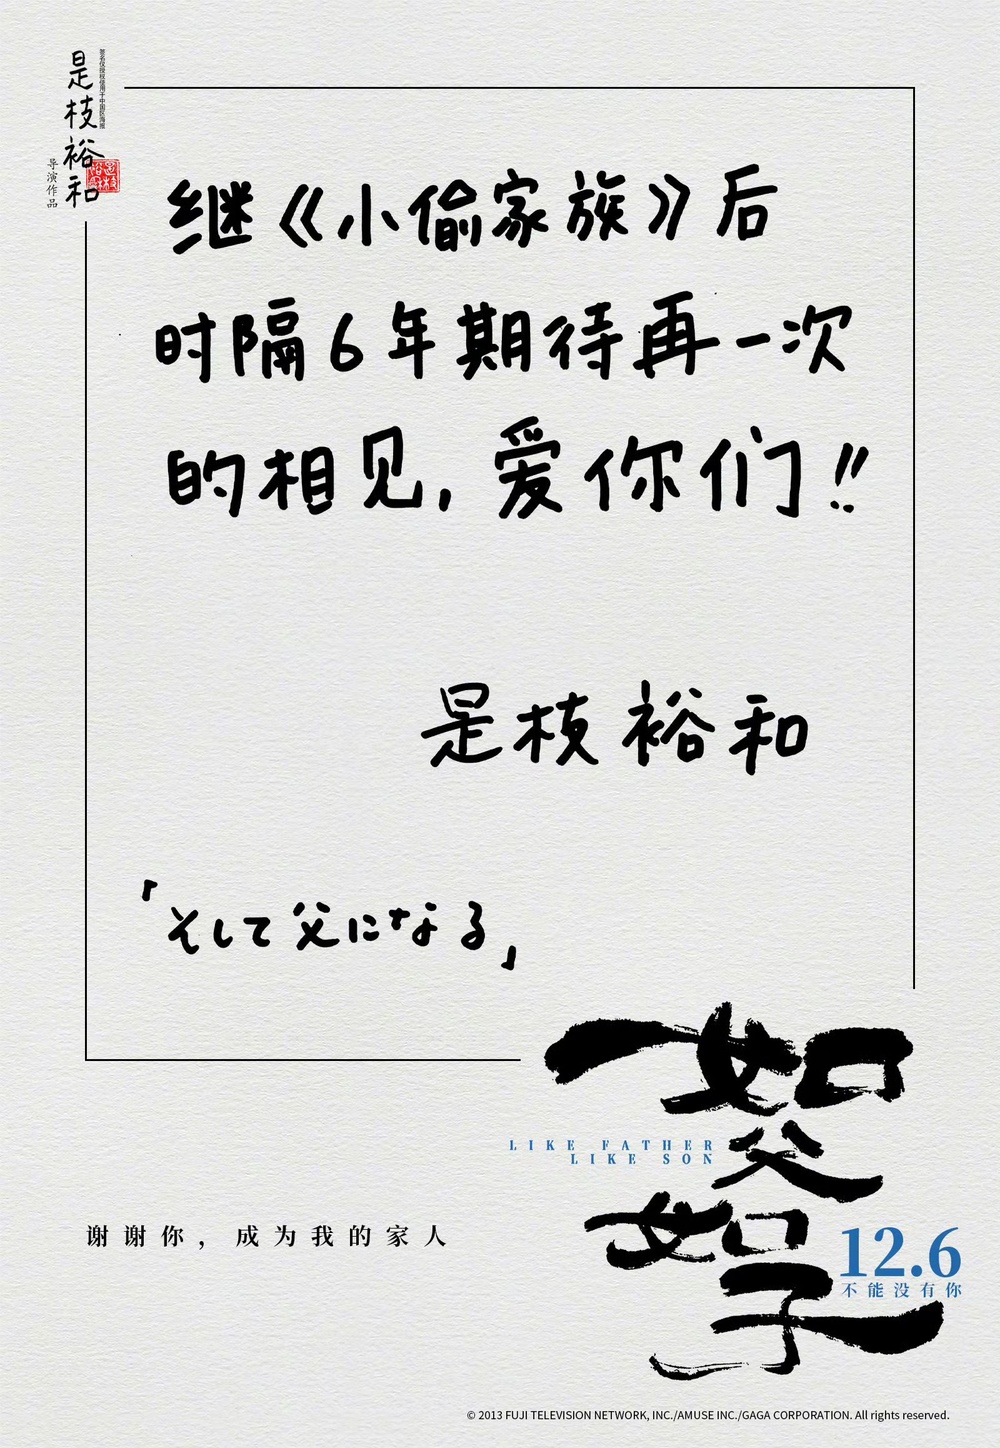 是枝裕和
导演作品
签名仅授权使用于中国区海报
继《小偷家族》后
时隔6年期待再一次
的相见,爱你们!!
是枝裕和
「そして父になる」
如父如子
LIKE FATHER
LIKE SON
谢谢你，成为我的家人
12.6
不能没有你
© 2013 FUJI TELEVISION NETWORK, INC./AMUSE INC./GAGA CORPORATION. All rights reserved.